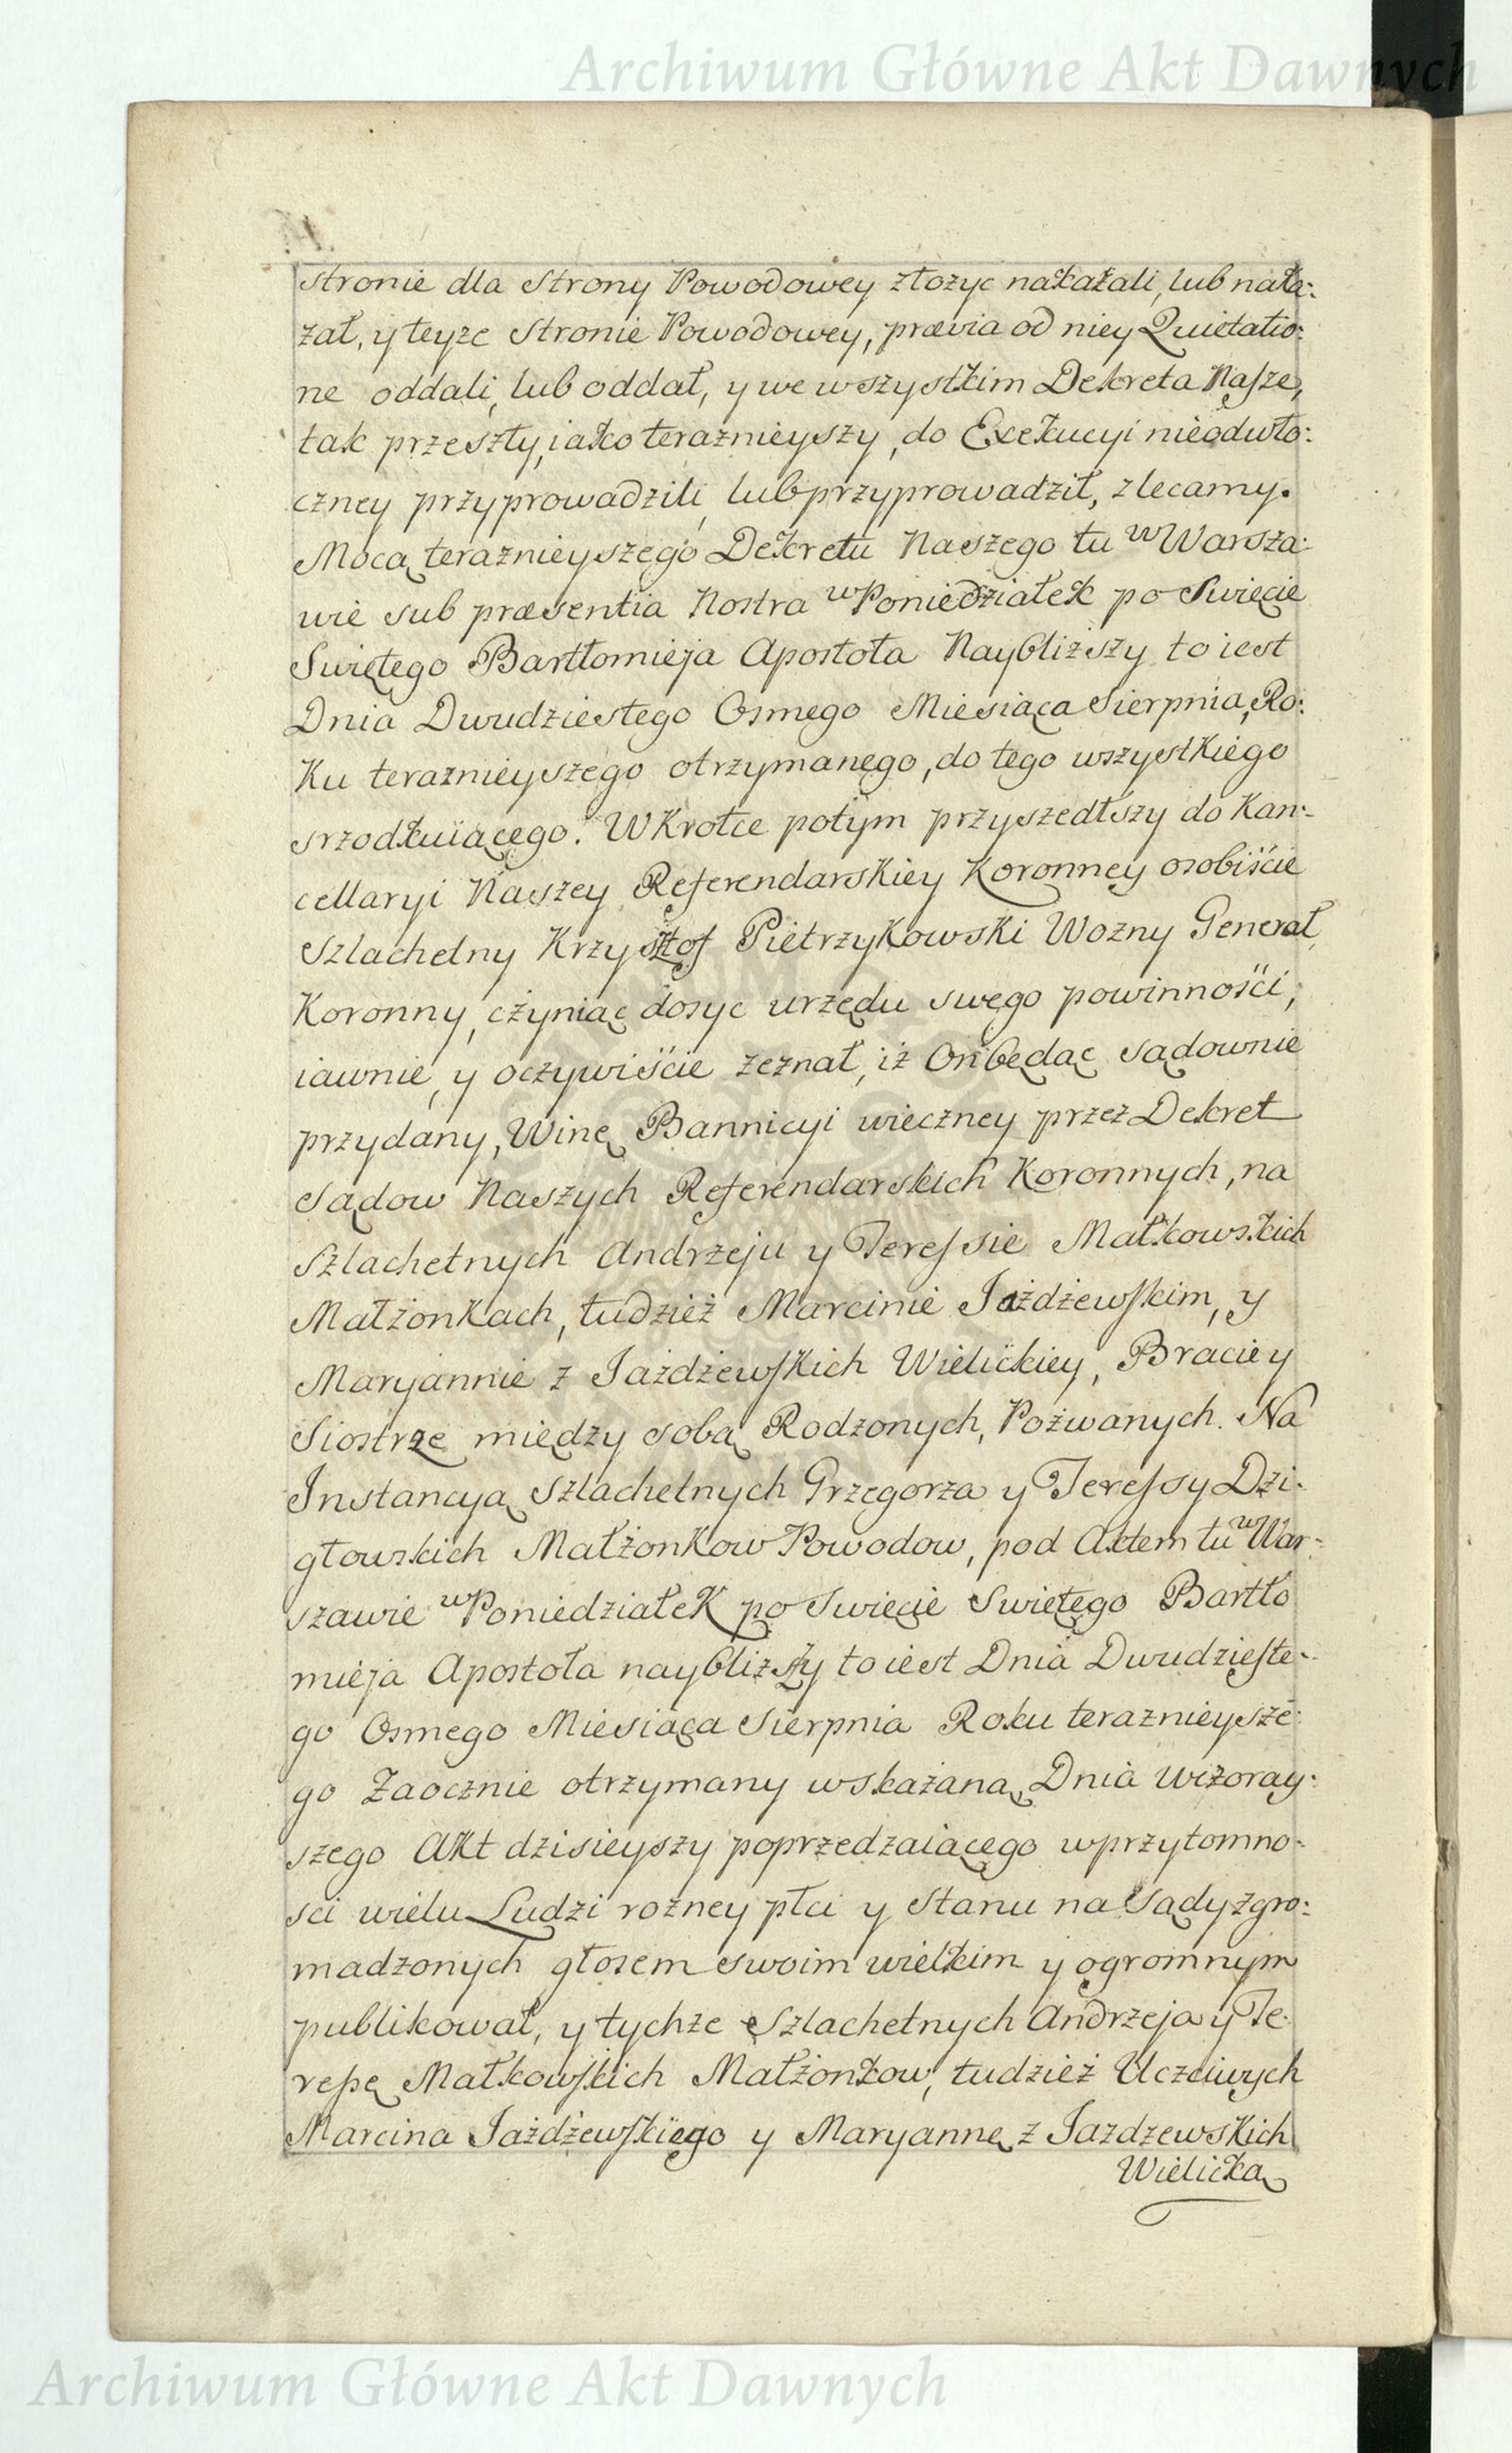 Archiwum Główne Akt Dawnych
stronie dla Strony Powodowey złożyc nakażali, lub naka:
zał, y teyże Stronie Powodowey, prævia od niey Quietatio:
ne oddali, lub oddał, y we wszystkim Dekreta Nasze,
tak przeszły, iako teraznieyszy, do Exekucyi nieodwło:
czney przyprowadzili, lub przyprowadził, zlecamy.
Mocą teraznieyszego Dekretu Naszego tu w Warsza:
wie sub præsentia Nostra w Poniedziałek po Swięcie
Swiętego Bartłomieja Apostoła Naybliższy to iest
Dnia Dwudziestego Osmego Miesiąca Sierpnia, Ro:
ku teraznieyszego otrzymanego, do tego wszystkiego
srzodkuiącego. Wkrotce potym przyszedłszy do Kan:
cellaryi Naszey Referendarskiey Koronney osobiście
Szlachetny Krzysztof Pietrzykowski Wozny Generał
Koronny, czyniąc dosyc urzędu swego powinności,
iawnie, y oczywiście zeznał, iż On będąc sądownie
przydany, Winę Bannicyi wieczney przez Dekret
Sądow Naszych Referendarskich Koronnych, na
Szlachetnych Andrzeju y Teressie Małkowskich
Małżonkach, tudzież Marcinie Jażdżewskim, y
Maryannie z Jażdżewskich Wielickiey, Bracie y
Siostrze między sobą Rodzonych, Pozwanych. Na
Instancyą Szlachetnych Grzegorza y Teressy Dzi:
głowskich Małżonkow Powodow, pod Aktem tu w War:
szawie w Poniedziałek po Swięcie Swiętego Bartło
mieja Apostoła naybliższy to iest Dnia Dwudzieste:
go Osmego Miesiąca Sierpnia Roku teraznieysze:
go Zaocznie otrzymany wskażaną, Dnia wczoray:
szego Akt dzisieyszy poprzedzaiącego w przytomno:
sci wielu Ludzi rożney płci y Stanu na Sądy zgro:
madzonych głosem swoim wielkim y ogromnym
publikował, y tychże Szlachetnych Andrzeja y Te:
ressę Małkowskich Małżonkow, tudzież Uczciwych
Marcina Jażdżewskiego y Maryannę z Jazdzewskich
Wielicką
Archiwum Główne Akt Dawnych